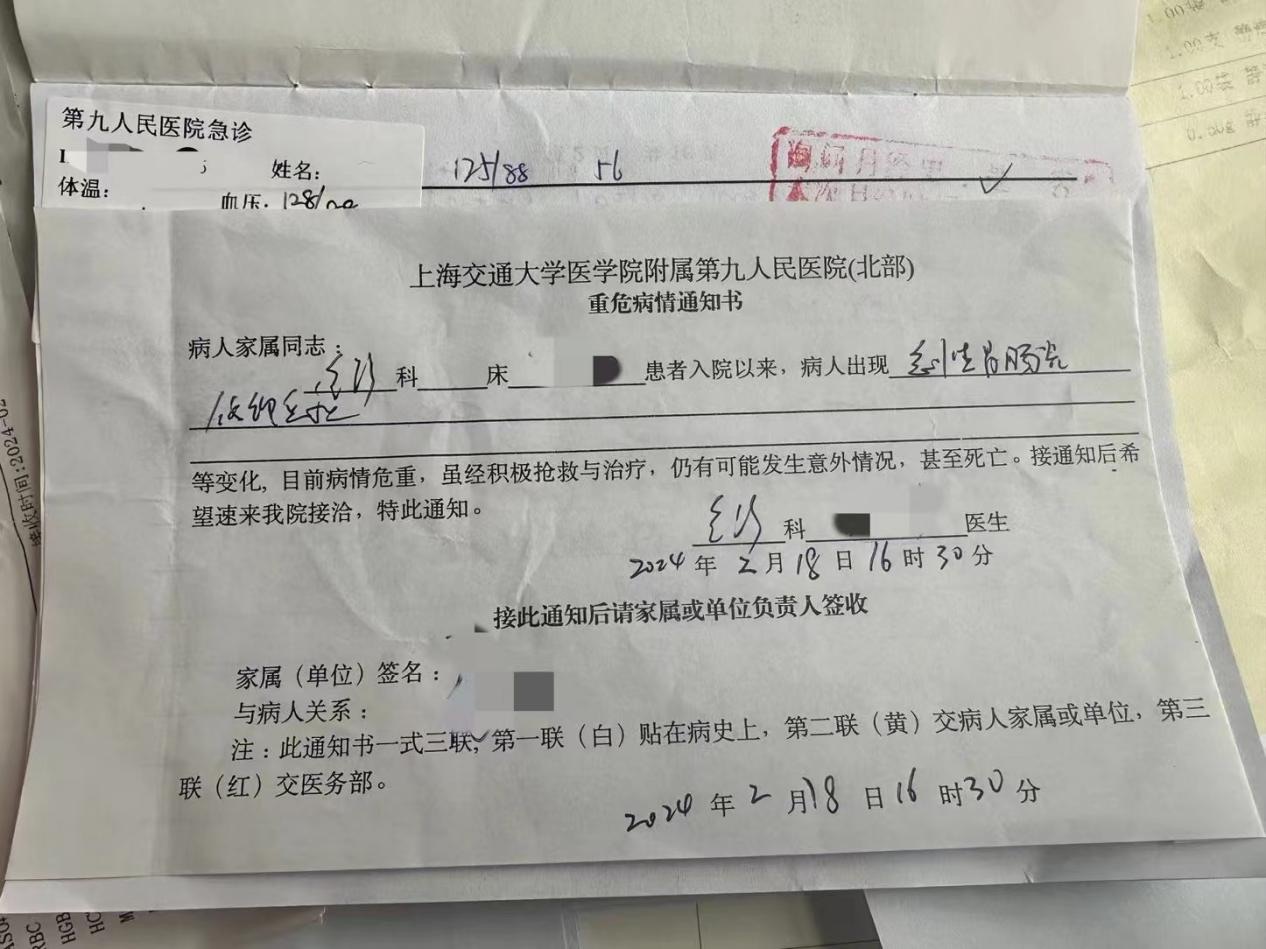 第九人民医院急诊
姓名:
体温:
血压. 128/
125/88 56
上海交通大学医学院附属第九人民医院(北部)
重危病情通知书
病人家属同志:
急诊科 床 患者入院以来,病人出现 急性胃肠炎
等变化, 目前病情危重,虽经积极抢救与治疗,仍有可能发生意外情况,甚至死亡。接通知后希
望速来我院接洽,特此通知。
急诊科 医生
2024年2月18日16时30分
接此通知后请家属或单位负责人签收
家属(单位)签名:
与病人关系:
注:此通知书一式三联, 第一联(白)贴在病史上,第二联(黄)交病人家属或单位,第三
联(红)交医务部。
2024年2月18日16时30分
接收时间:2024-02
RBC
HGB